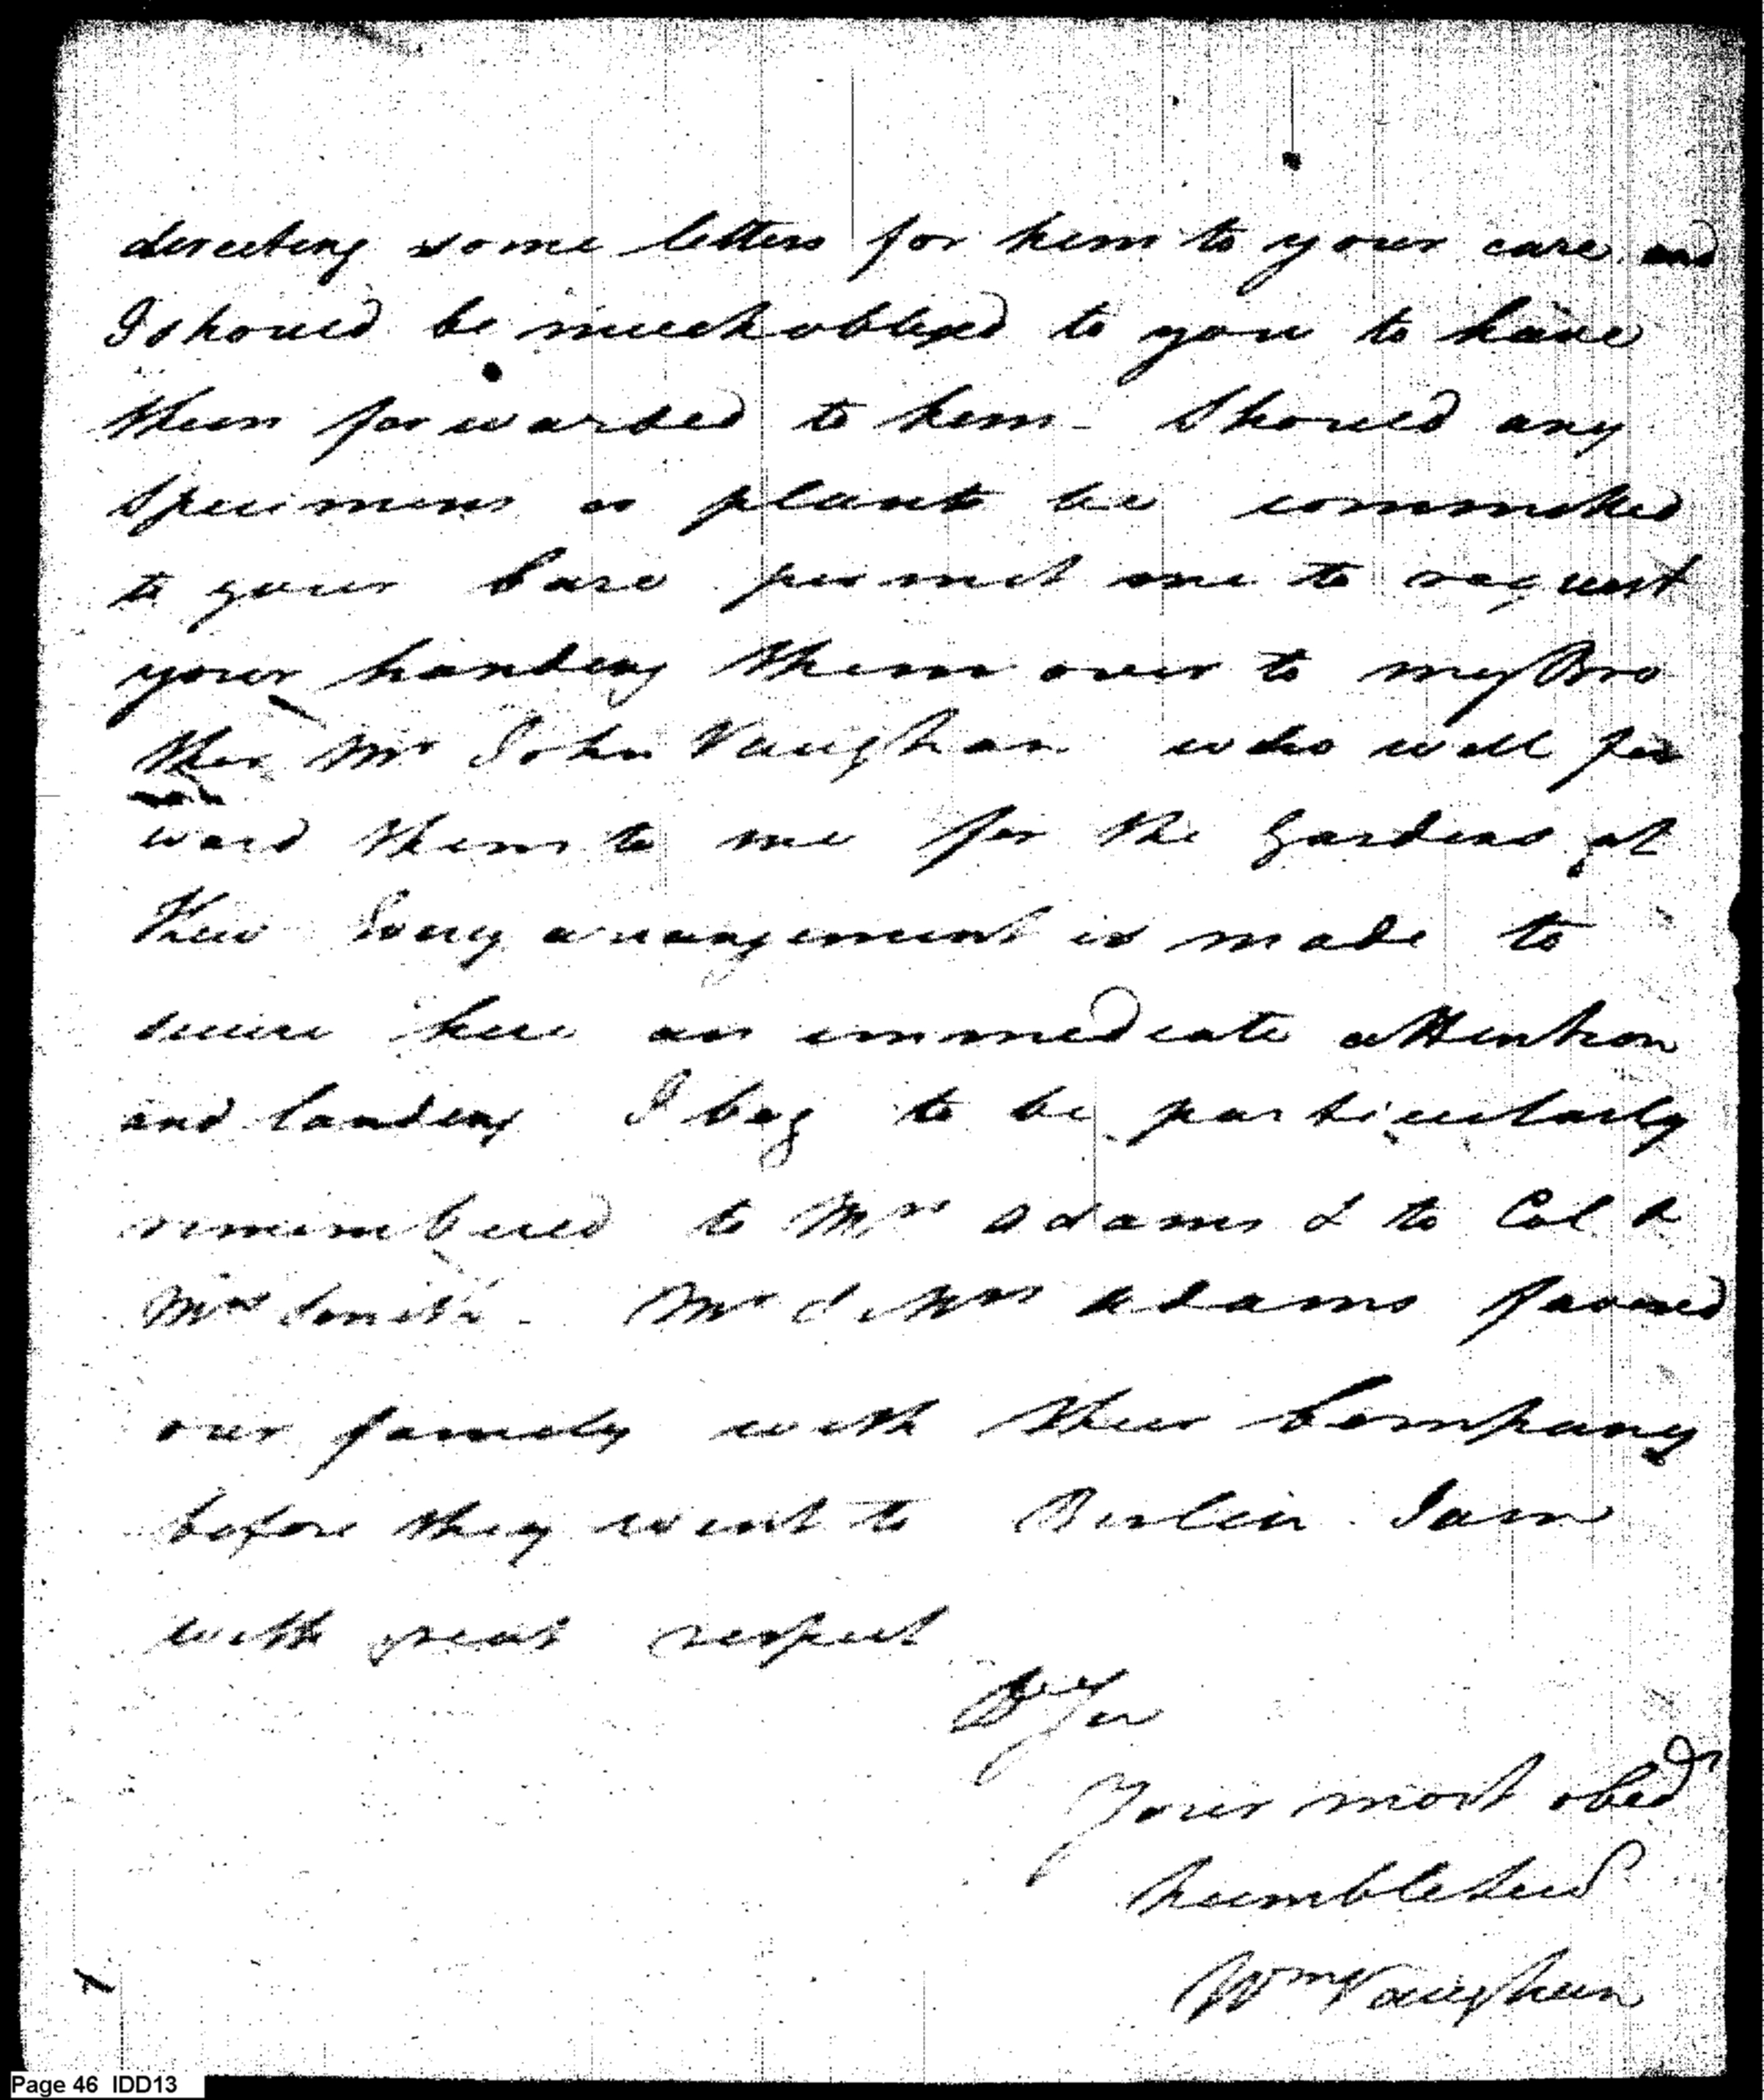 directing some letters for him to your care and
I should be much obliged to you to have
them forwarded to him - Should any
Specimens or plants be committed
to your Care permit me to request
your handing them over to my Bro
ther Mr John Vaughan who will for
ward them to me for the Gardens at
Kew Every arrangement is made to
secure here an immediate attention
and landing I beg to be particularly
remembered to Mrs Adams & to Col &
Mrs Smith - Mr & Mrs Adams favored
our family with their Company
before they went to Berlin. I am
with great respect
Dr Sir
Your most obed
humble Serv
Wm Vaughan
Page 46 IDD13